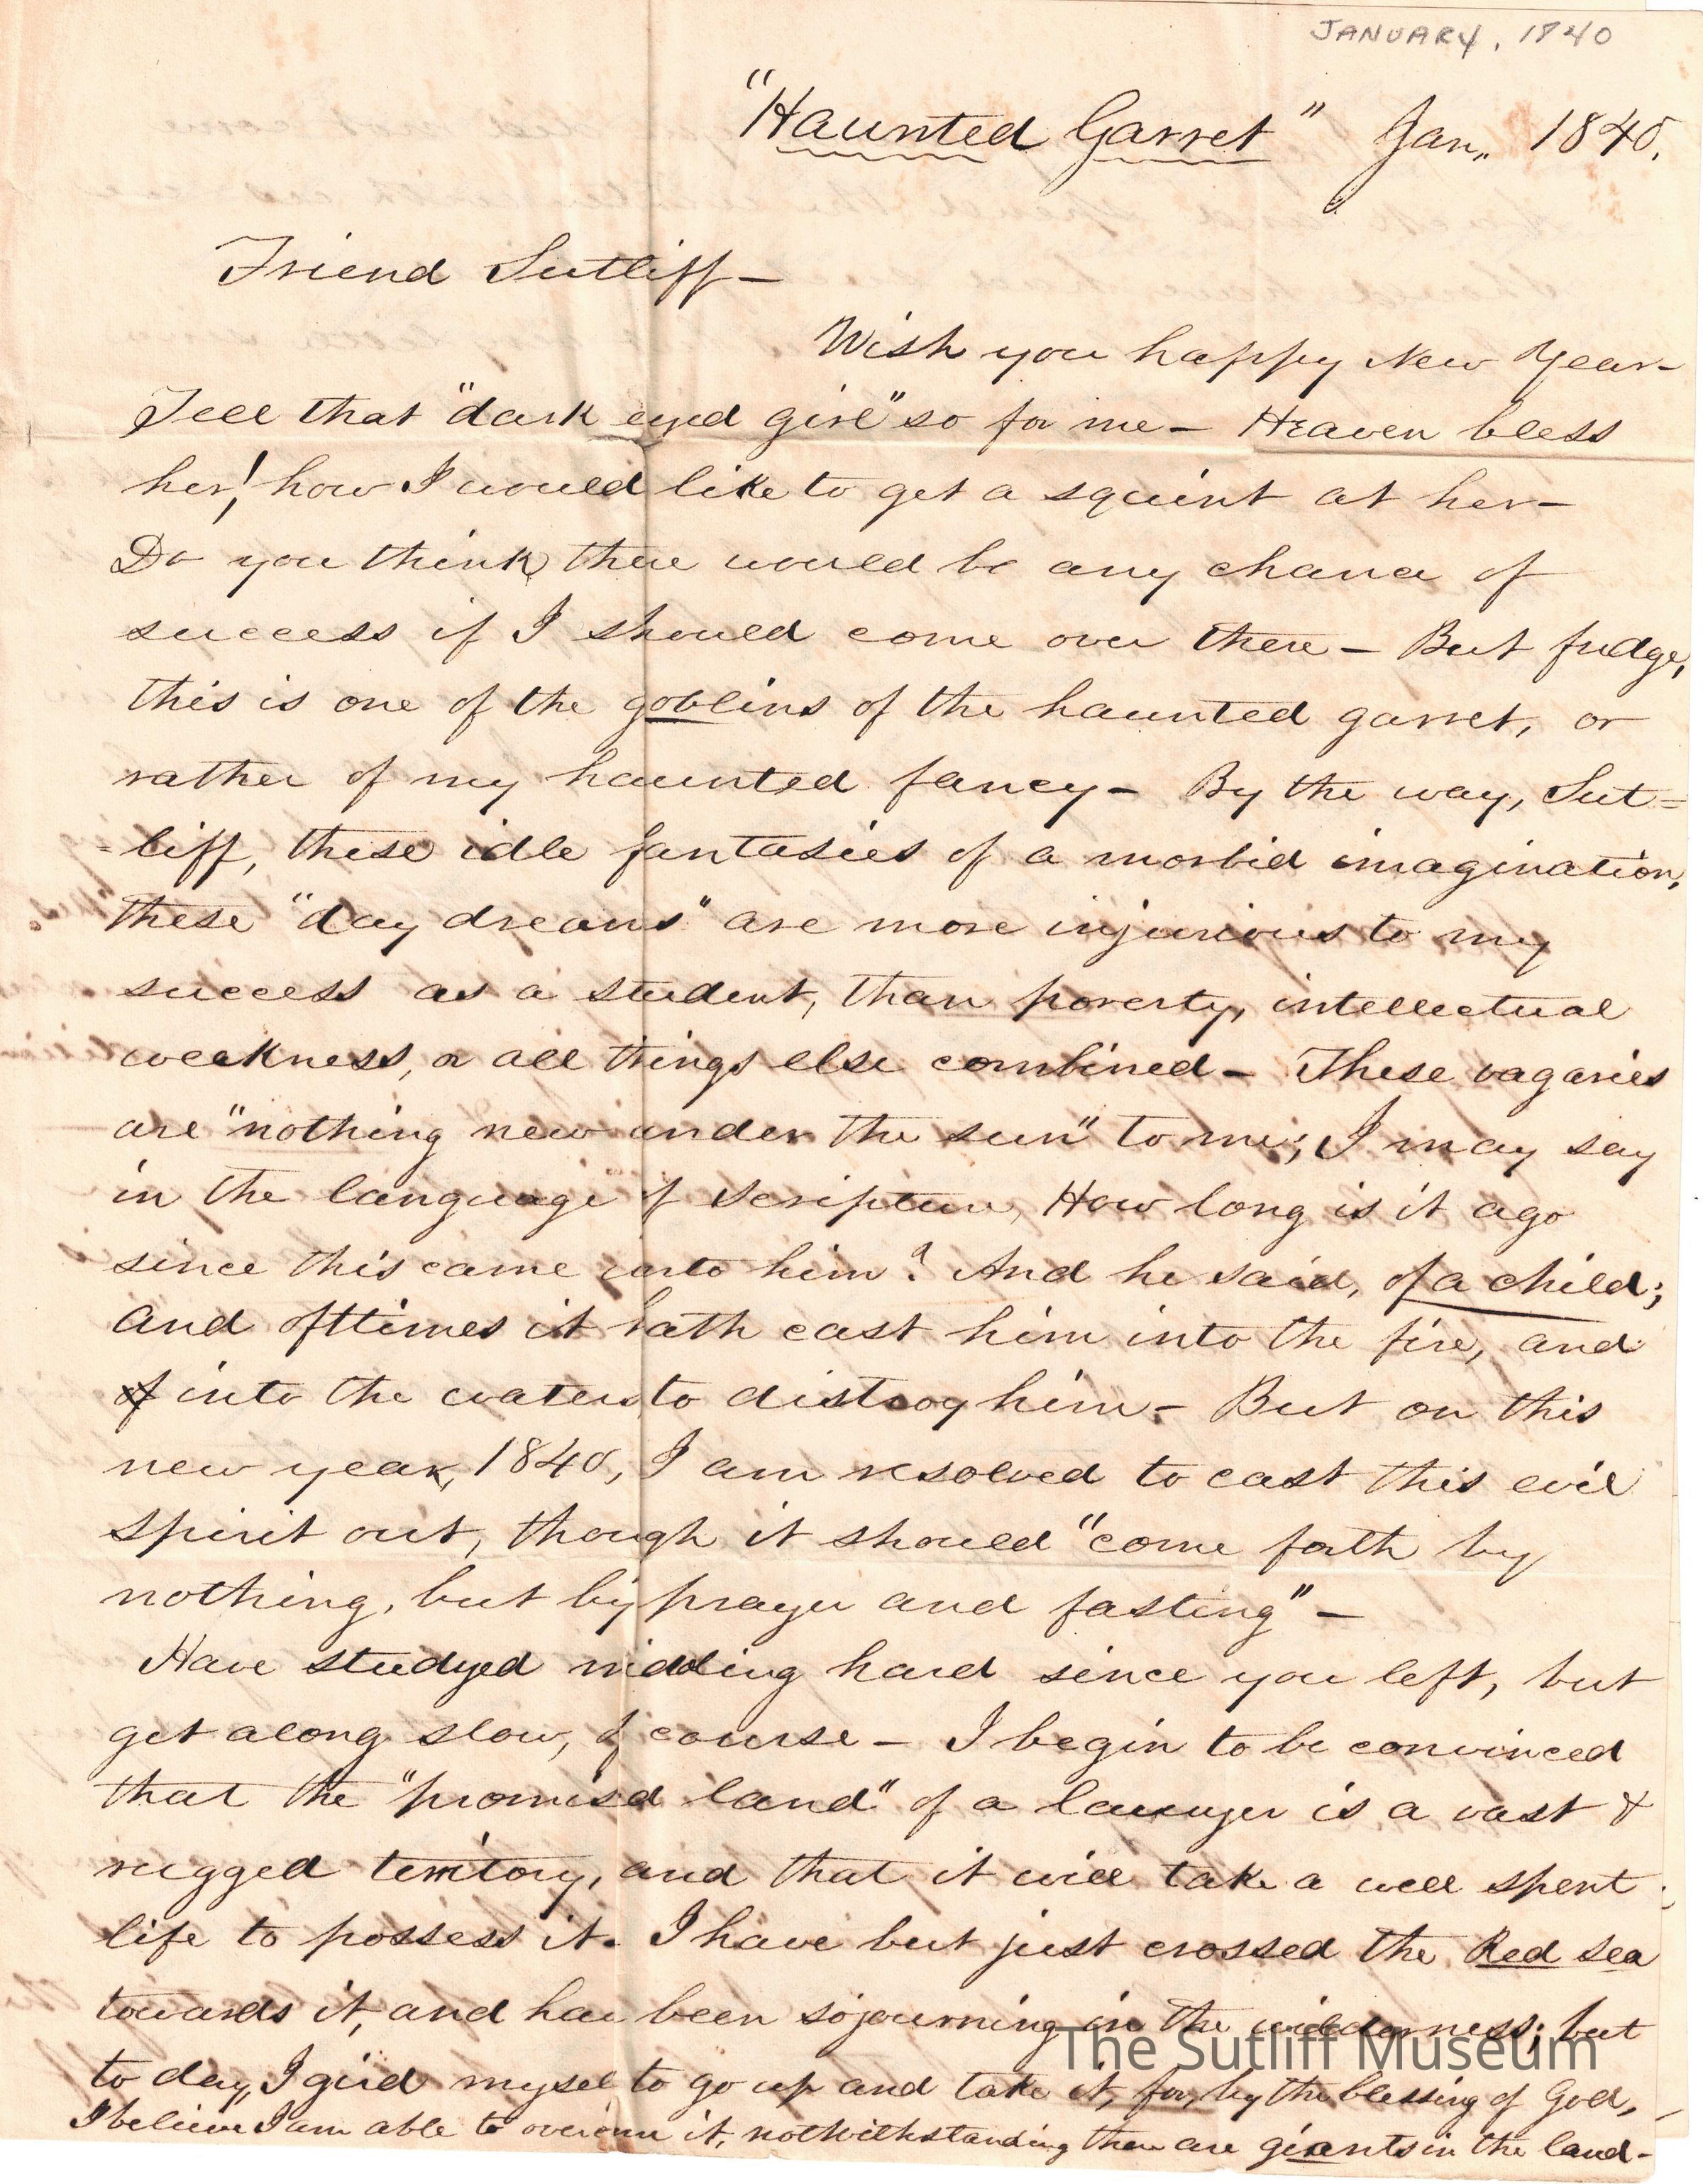 JANUARY, 1840
"Haunted Garret" Jan,, 1840.
Friend Sutliff—
Wish you happy New Year—
Tell that "dark eyed girl" so for me— Heaven bless
her! how I would like to get a squint at her—
Do you think there would be any chance of
success if I should come over there— But fudge,
this is one of the goblins of the haunted garret, or
rather of my haunted fancy— By the way, Sut=
=liff, these idle fantasies of a morbid imagination,
these "day dreams" are more injurious to my
success as a student, than poverty, intellectual
weakness, or all things else combined— These vagaries
are "nothing new under the sun" to me; I may say
in the language of Scripture, How long is it ago
since this came unto him? And he said, of a child;
and ofttimes it hath cast him into the fire, and
into the waters to distroy him— But on this
new year, 1840, I am resolved to cast this evil
spirit out, though it should "come forth by
nothing, but by prayer and fasting"—
Have studyed midding hard since you left, but
get along slow, of course— I begin to be convinced
that the "promised land" of a lawyer is a vast &
rugged territory, and that it will take a well spent
life to possess it. I have but just crossed the Red Sea
towards it, and have been sojourning in the wilderness; but
to day, I gird mysel to go up and take it, for, by the blessing of God,
I believe I am able to overcome it, notwithstanding there are giants in the land—
The Sutliff Museum